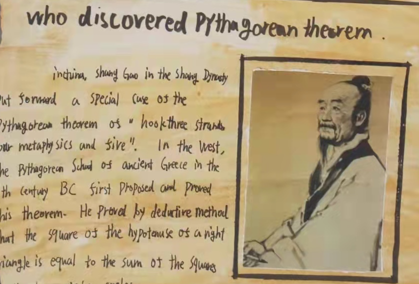 who discovered Pythagorean theorem.
inchina, shang Gao in the Shang Dynasty
put forward a special case of the
Pythagorean theorem of "hook three strands
four metaphysics and five". In the West,
the Pythagorean School of ancient Greece in the
6th century BC first Proposed and Proved
this theorem. He Proved by deductive method
that the square of the hypotenuse of a right
triangle is equal to the sum of the squares